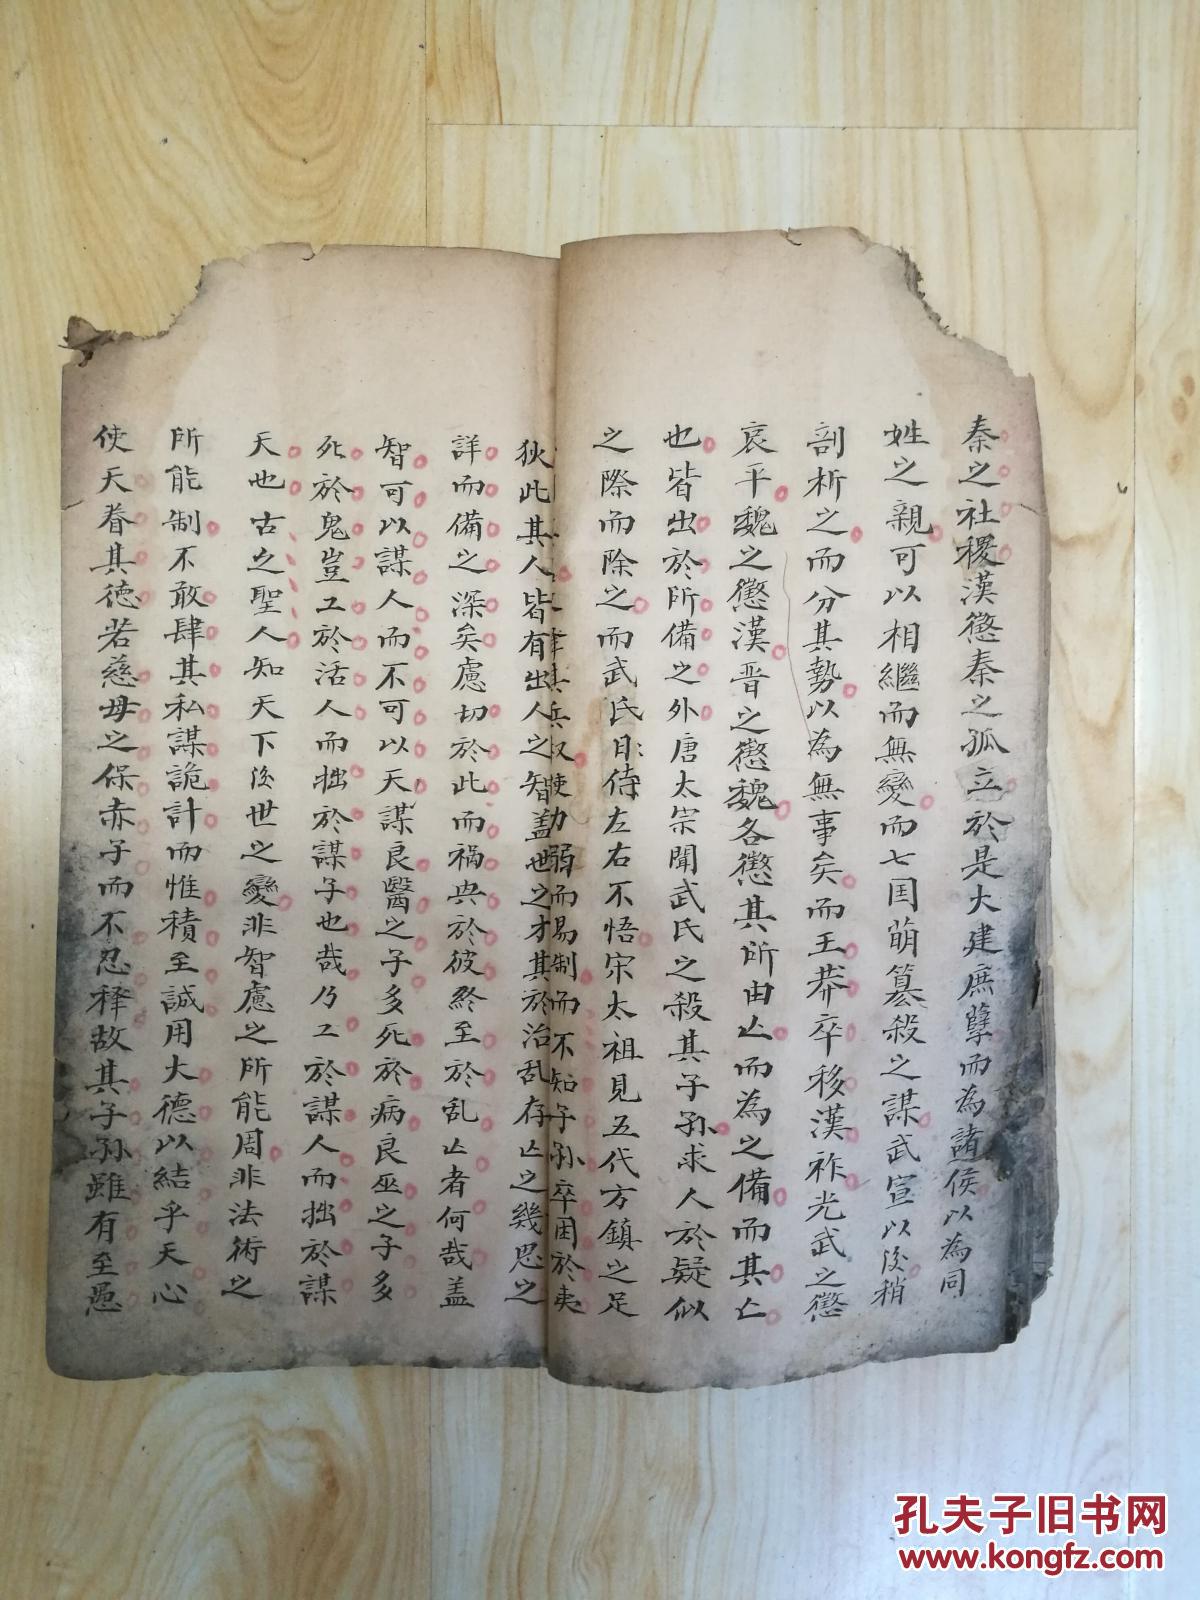 秦之社稷漢懲秦之孤立於是大建庶孽而為諸侯以為同
姓之親可以相繼而無變而七国萌篡殺之謀武宣以後稍
剖析之而分其勢以為無事矣而王莽卒移漢祚光武之懲
哀平魏之懲漢晋之懲魏各懲其所由亾而為之備而其亡
也皆出於所備之外唐太宗聞武氏之殺其子孫求人於疑似
之際而除之而武氏日侍左右不悟宋太祖見五代方鎮之足
其兵权使力弱而易制而不知子孫卒困於夷
狄此其人皆有出人之智盖世之才其於治乱存亾之幾思之
詳而備之深矣慮切於此而禍典於彼終至於乱亾者何哉盖
智可以謀人而不可以天謀良醫之子多死於病良巫之子多
死於鬼豈工於活人而拙於謀子也哉乃工於謀人而拙於謀
天也古之聖人知天下後世之變非智慮之所能周非法術之
所能制不敢肆其私謀詭計而惟積至誠用大德以結乎天心
使天眷其徳若慈母之保赤子而不忍释故其子孫雖有至愚
孔夫子旧书网
www.kongfz.com